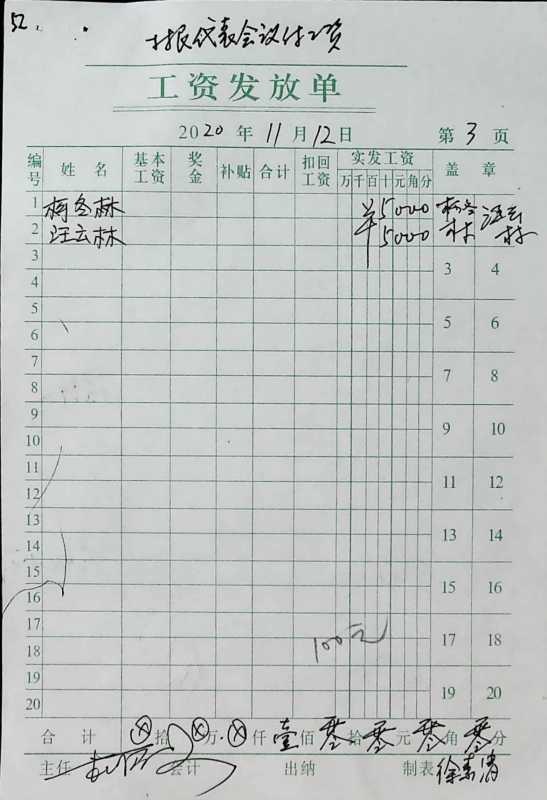 52.
村民代表会议付工资
工资发放单
2020 年 11 月 12 日 第 3 页
编号 姓 名 基本工资 奖金 补贴 合计 扣回工资 实发工资 万 千 百 十 元 角 分 盖 章
1 柯冬林 ¥5000 柯冬林 汪云林
2 汪云林 5000
3 3 4
4
5 5 6
6
7 7 8
8
9 9 10
10
11 11 12
12
13 13 14
14
15 15 16
16
17 100元 17 18
18
19 19 20
20
合 计 ⓧ拾ⓧ万ⓧ仟壹佰零拾零元零角零分
主任 会计 出纳 制表